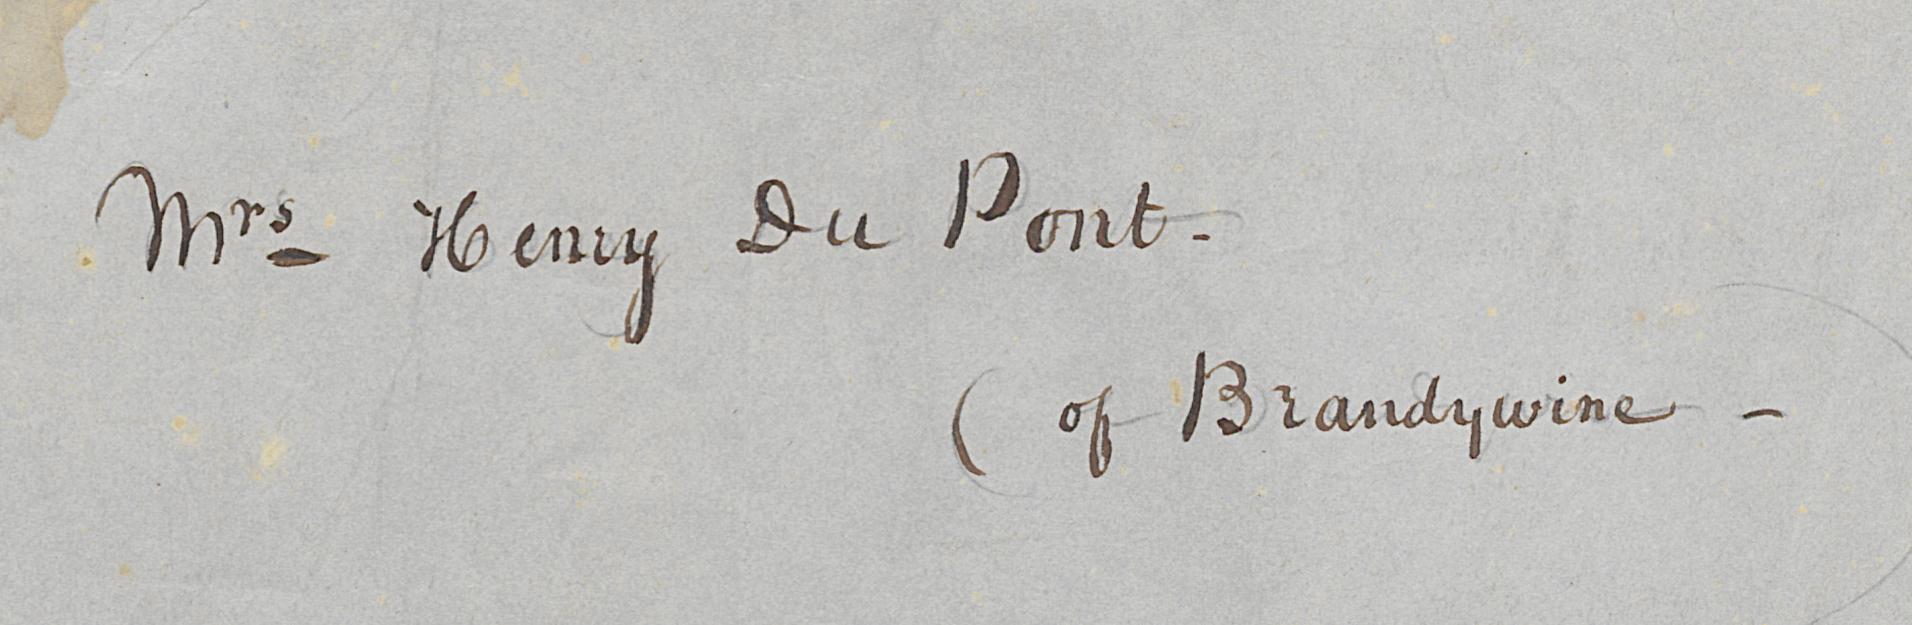 Mrs Henry Du Pont-
( of Brandywine -